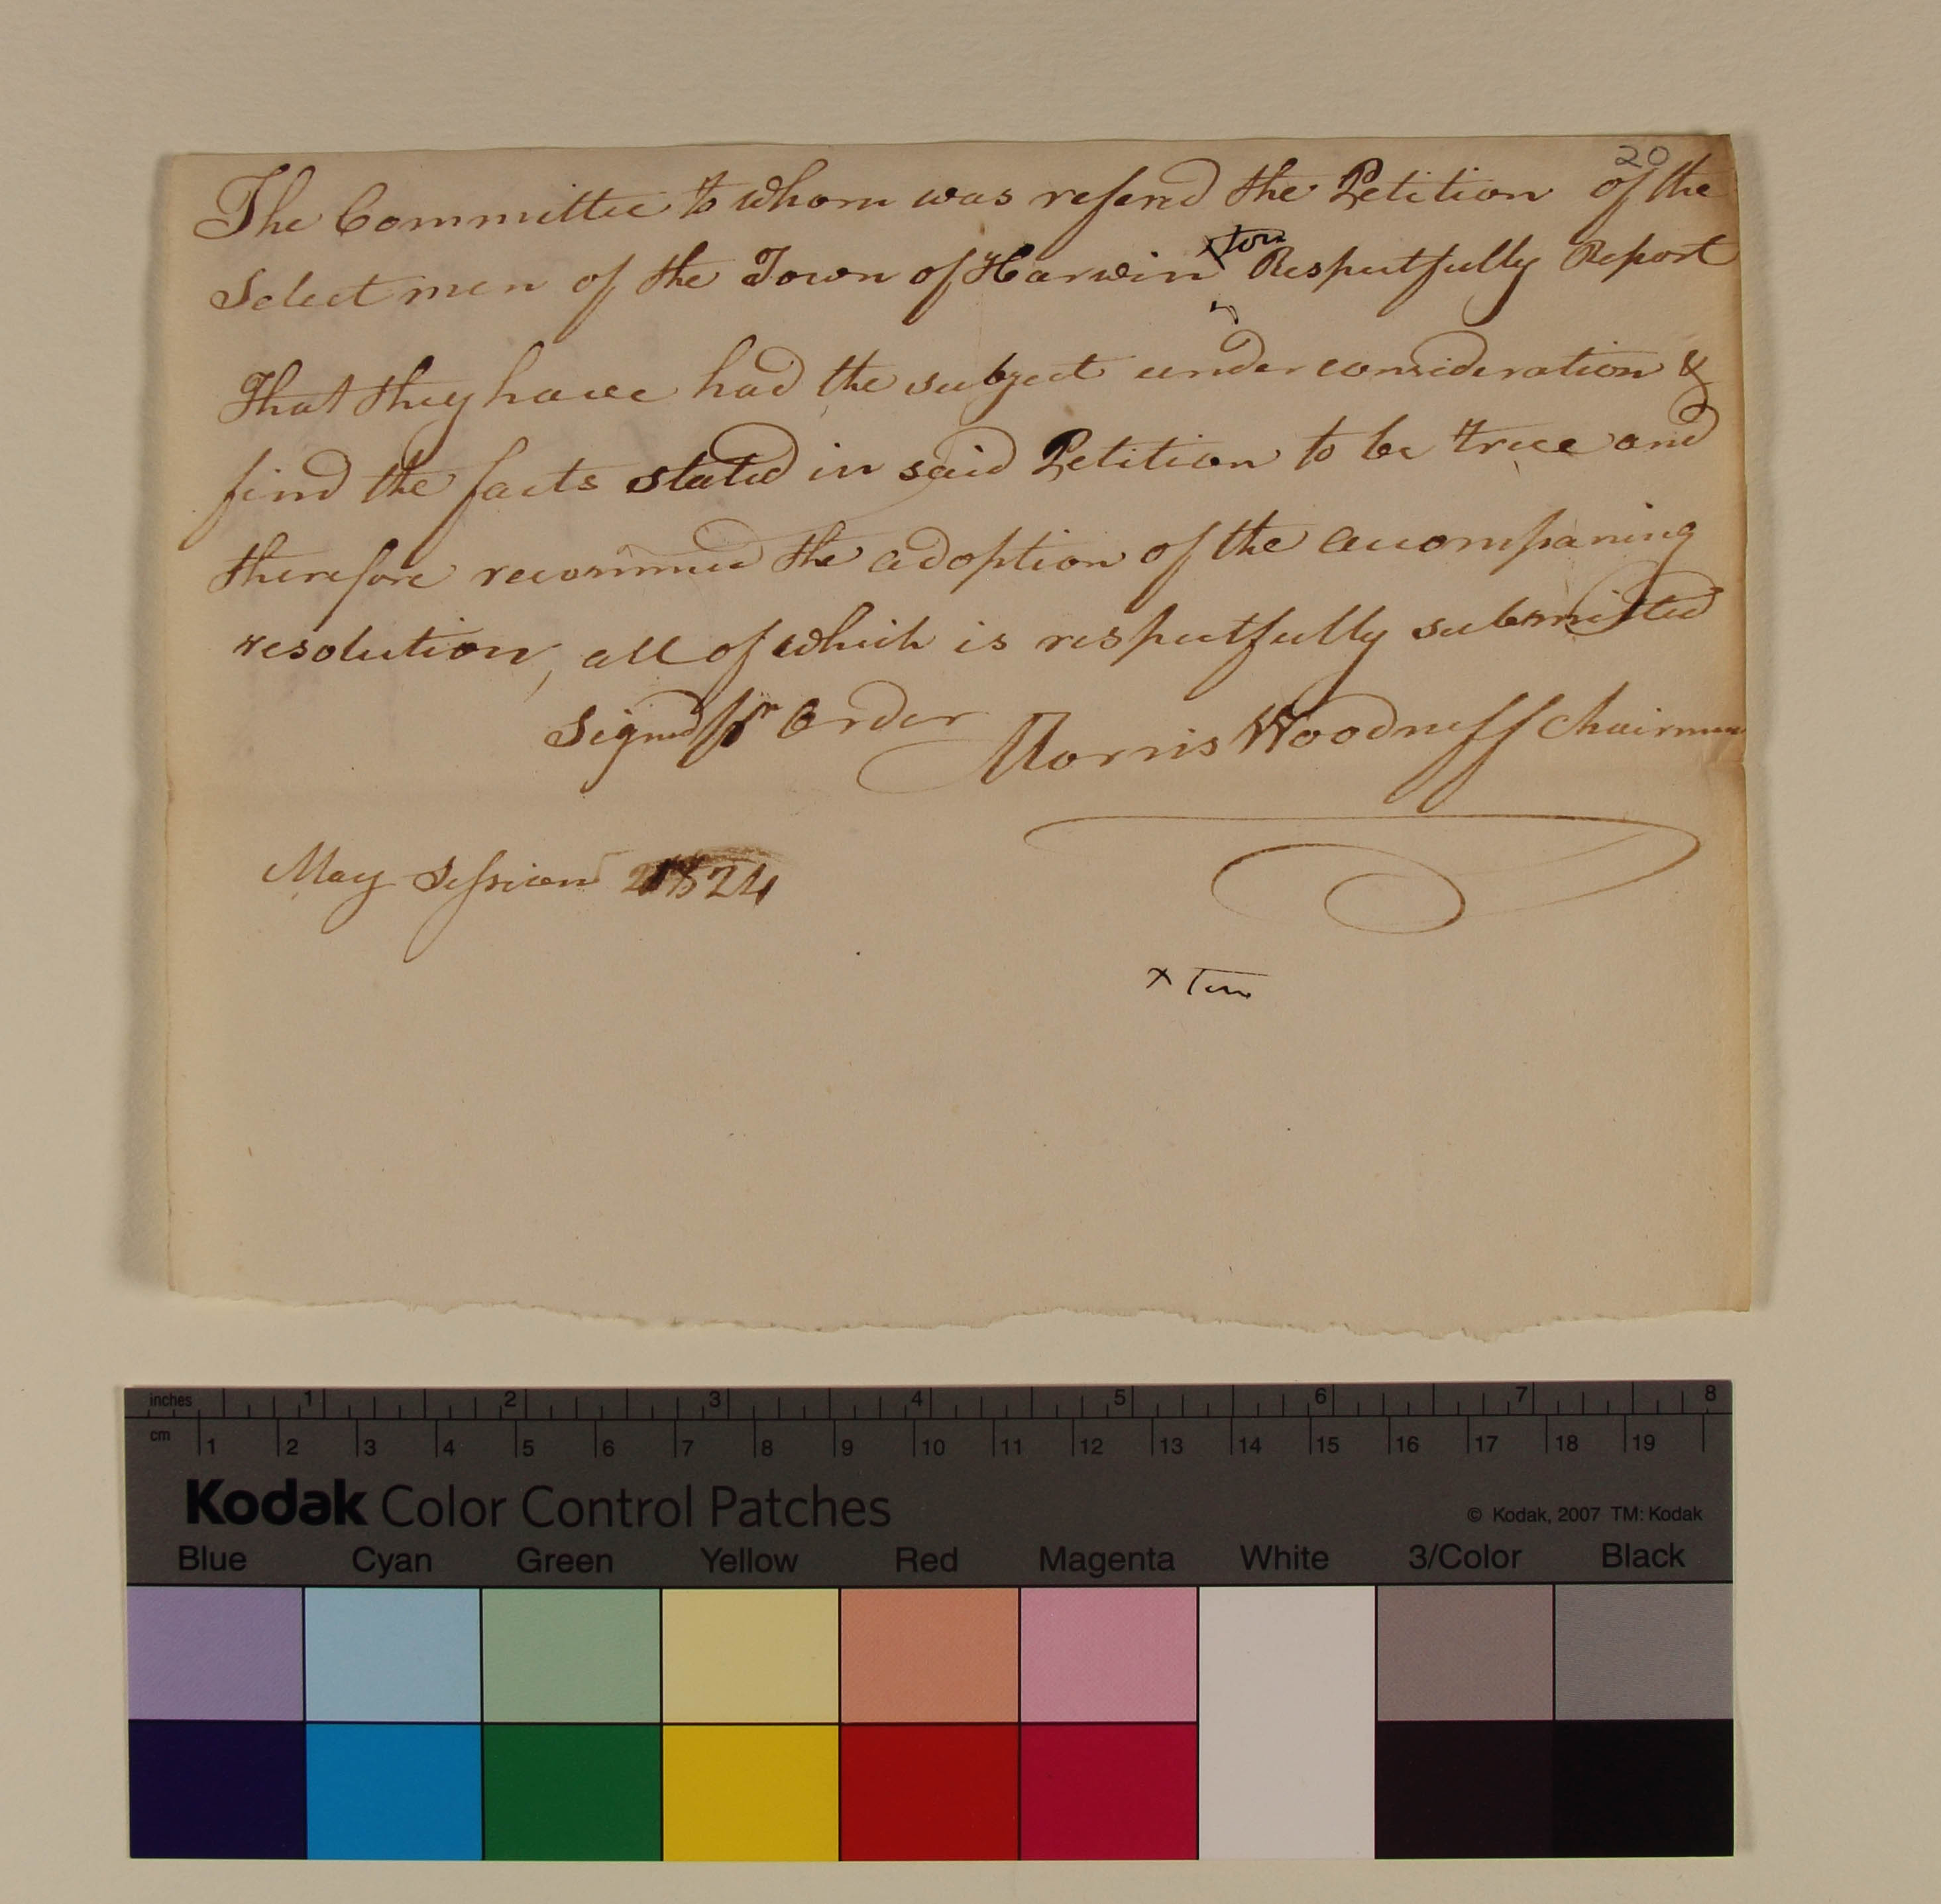 20
The Committee to whom was referd the Petition of the
Select men of the Town of Harwin x ton Respectfully Report
That they have had the subject under consideration &
find the facts stated in said Petition to be true and
therefore recommed the adoption of the accompaning
resolution, all of which is respectfully submitted
Signed pr Order Morris Woodruff Chairman
May Session 1824
x ton
inches 1 2 3 4 5 6 7 8
cm 1 2 3 4 5 6 7 8 9 10 11 12 13 14 15 16 17 18 19
Kodak Color Control Patches © Kodak, 2007 TM: Kodak
Blue Cyan Green Yellow Red Magenta White 3/Color Black